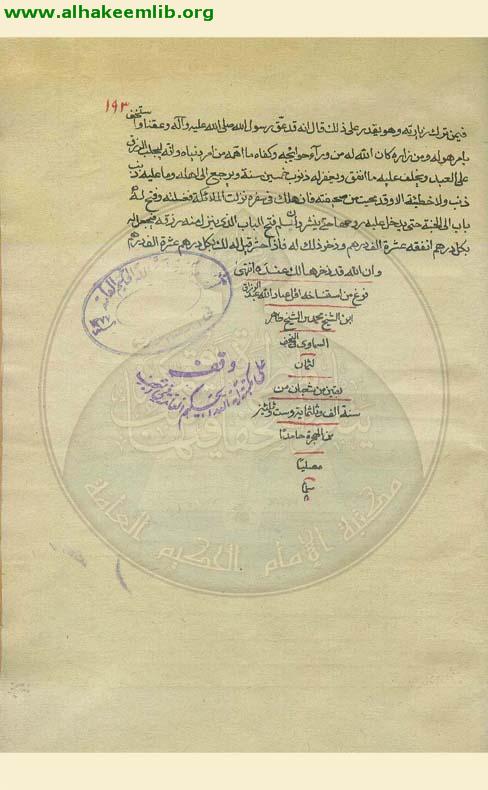 www.alhakeemlib.org
١٩٣
فيمن ترك زيارته وهو يقدر على ذلك قال انه قد عق رسول الله صلى الله عليه وآله وعقنا واستخف
بامر هو له ومن زاره كان الله له من وراء حوائجه وكفاه ما اهمه من امر دنياه وانه ليجلب الرزق
على العبد ويخلف عليه ما انفق ويغفر له ذنوب خمسين سنة ويرجع الى اهله وما عليه ذنب
ولا خطيئة الا وقد محيت من صحيفته فان هلك في سفره نزلت الملائكة فغسلته وفتح له
باب الى الجنة حتى يدخل عليه روحها حتى ينشر وان سلم فتح الباب الذي ينزل منه رزقه فيجعل له
بكل درهم انفقه عشرة الف درهم وذخر ذلك له فاذا حشر قيل له لك بكل درهم عشرة الف درهم
وان الله قد ذخرها لك عنده انتهى
فرغ من استنساخه اقل عباد الله عبد الرزاق
ابن الشيخ محمد بن الشيخ طاهر
السماوي في النجف
لثمان
بقين من شعبان من
سنة الف وثلثمائة وست وثلثين
من الهجرة حامدا
مصليا
مسلما
وقف
مكتبة الإمام الحكيم العامة